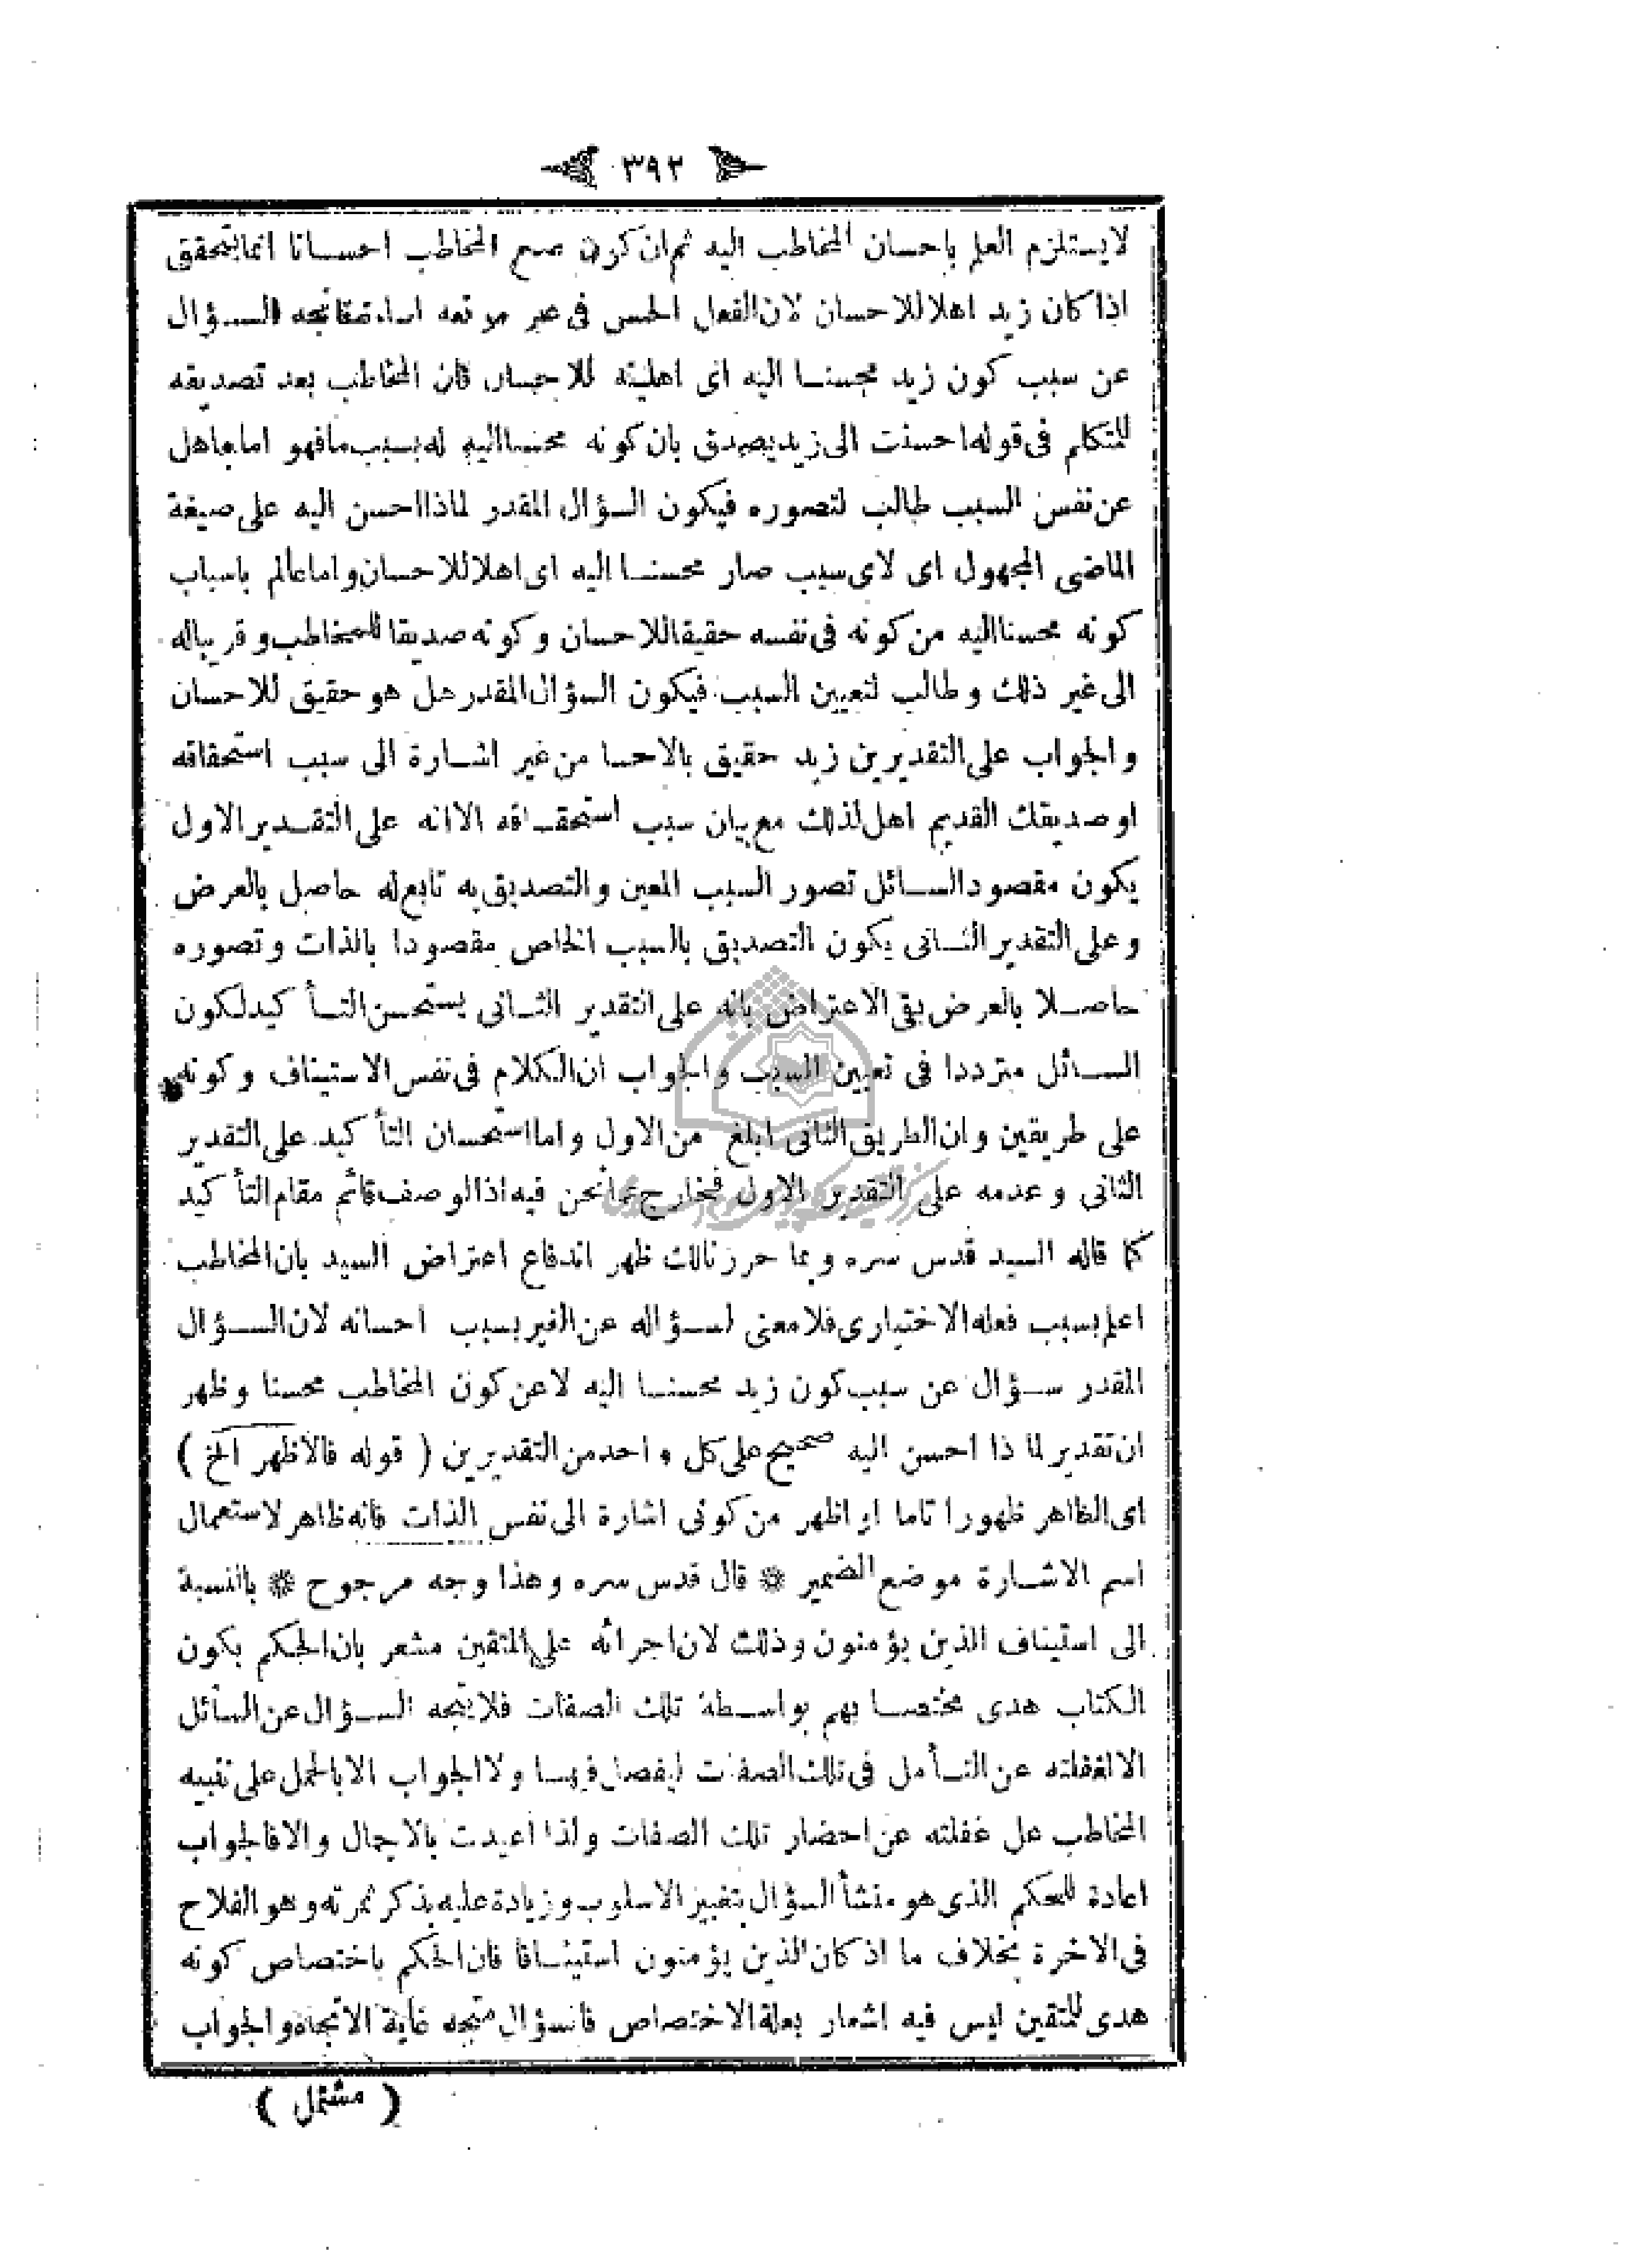 ٣٩٢
لايستلزم العلم باحسان المخاطب اليه ثم ان كون صنع المخاطب احسانا انما يتحقق
اذا كان زيد اهلا للاحسان لان الفعل الحسن فى غير موقعه اساءة فاتجه السؤال
عن سبب كون زيد محسنا اليه اى اهليته للاحسان فان المخاطب بعد تصديقه
للمتكلم فى قوله احسنت الى زيد يصدق بان كونه محسنا اليه له بسبب ما فهو اما جاهل
عن نفس السبب طالب لتصوره فيكون السؤال المقدر لماذا احسن اليه على صيغة
الماضى المجهول اى لاى سبب صار محسنا اليه اى اهلا للاحسان واما عالم باسباب
كونه محسنا اليه من كونه فى نفسه حقيقا للاحسان وكونه صديقا للمخاطب وقريباله
الى غير ذلك وطالب لتعيين السبب فيكون السؤال المقدر هل هو حقيق للاحسان
والجواب على التقديرين زيد حقيق بالاحسا من غير اشارة الى سبب استحقاقه
او صديقك القديم اهل لذلك مع بيان سبب استحقاقه الا انه على التقدير الاول
يكون مقصود السائل تصور السبب المعين والتصديق به تابع له حاصل بالعرض
وعلى التقدير الثانى يكون التصديق بالسبب الخاص مقصودا بالذات وتصوره
حاصلا بالعرض بقى الاعتراض بانه على التقدير الثانى يستحسن التأكيد لكون
السائل مترددا فى تعيين السبب والجواب ان الكلام فى نفس الاستيناف وكونه
على طريقين وان الطريق الثانى ابلغ من الاول واما استحسان التأكيد على التقدير
الثانى وعدمه على التقدير الاول فخارج عما نحن فيه اذ الوصف قائم مقام التأكيد
كما قاله السيد قدس سره وبما حررنالك ظهر اندفاع اعتراض السيد بان المخاطب
اعلم بسبب فعله الاختيارى فلا معنى لسؤاله عن الغير بسبب احسانه لان السؤال
المقدر سؤال عن سبب كون زيد محسنا اليه لا عن كون المخاطب محسنا وظهر
ان تقدير لماذا احسن اليه صحيح على كل واحد من التقديرين ( قوله فالاظهر الخ )
اى الظاهر ظهورا تاما او اظهر من كونى اشارة الى نفس الذات فانه ظاهر لاستعمال
اسم الاشارة موضع الضمير * قال قدس سره وهذا وجه مرجوح * بالنسبة
الى استيناف الذين يؤمنون وذلك لان اجرائه على المتقين مشعر بان الحكم بكون
الكتاب هدى مختصا بهم بواسطة تلك الصفات فلا يتجه السؤال عن السائل
الا لغفلته عن التأمل فى تلك الصفات ليفصل فيها ولا الجواب الا بالحمل على تنبيه
المخاطب على غفلته عن احضار تلك الصفات ولذا اعيدت بالاجمال والا فالجواب
اعادة للحكم الذى هو منشأ السؤال بتغيير الاسلوب وزيادة عليه بذكر ثمرته وهو الفلاح
فى الاخرة بخلاف ما اذ كان الذين يؤمنون استينافا فان الحكم باختصاص كونه
هدى للمتقين ليس فيه اشعار بعلة الاختصاص فالسؤال متجه غاية الاتجاه والجواب
( مشتمل )